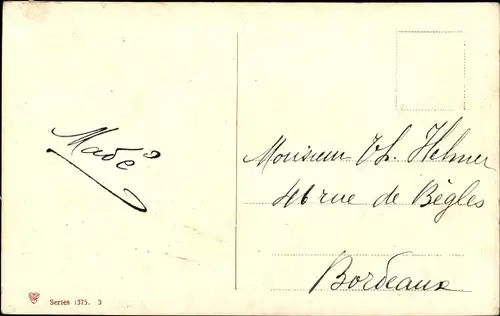 Madé
Monsieur Th. Helmer
46 rue de Bègles
Bordeaux
Series 1375. 3